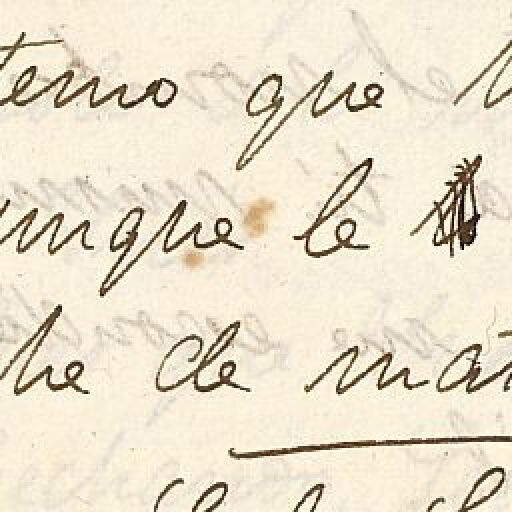 temo que
unque le
he de mat